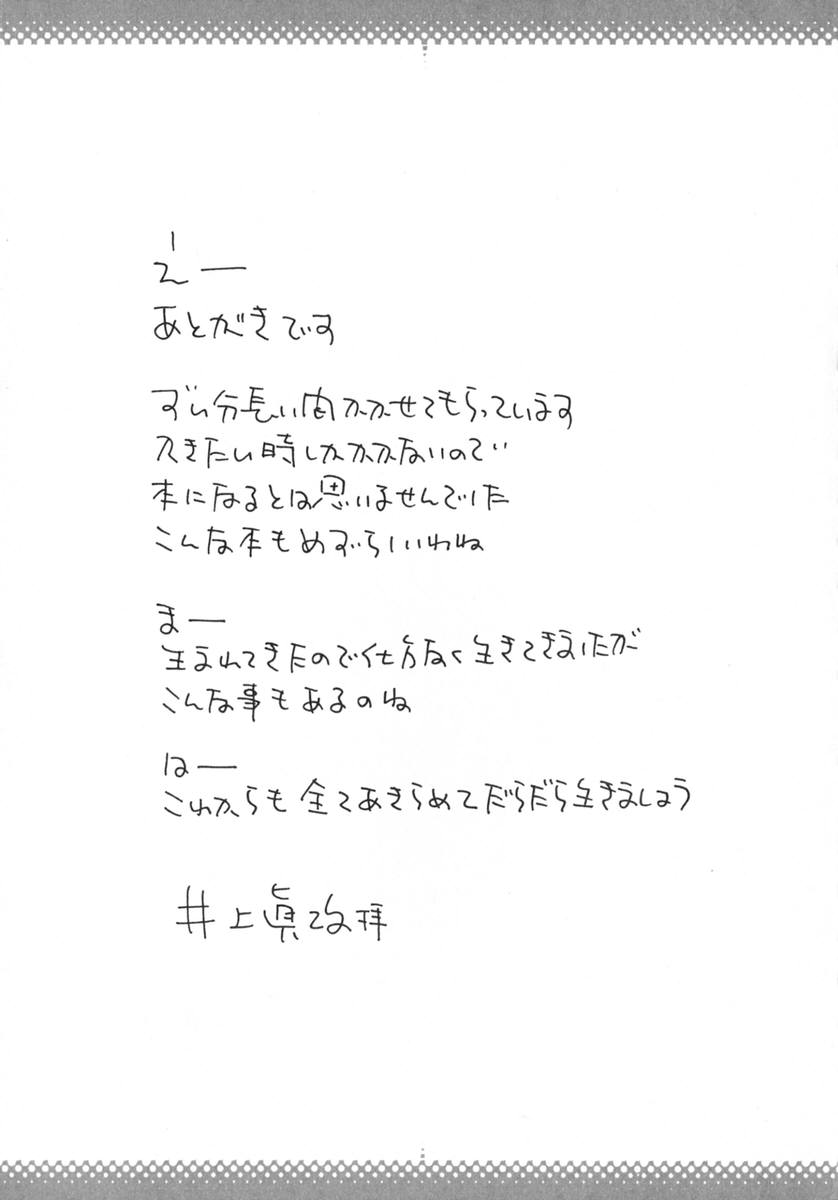 えー
あとがきです
ずい分長い間かかせてもらっています
かきたい時しかかかないので
本になるとは思いませんでした
こんな本もめずらしいわね
まー
生まれてきたので仕方なく生きてきましたが
こんな事もあるのね
はー
これからも全てあきらめてだらだら生きましょう
井上眞改拝